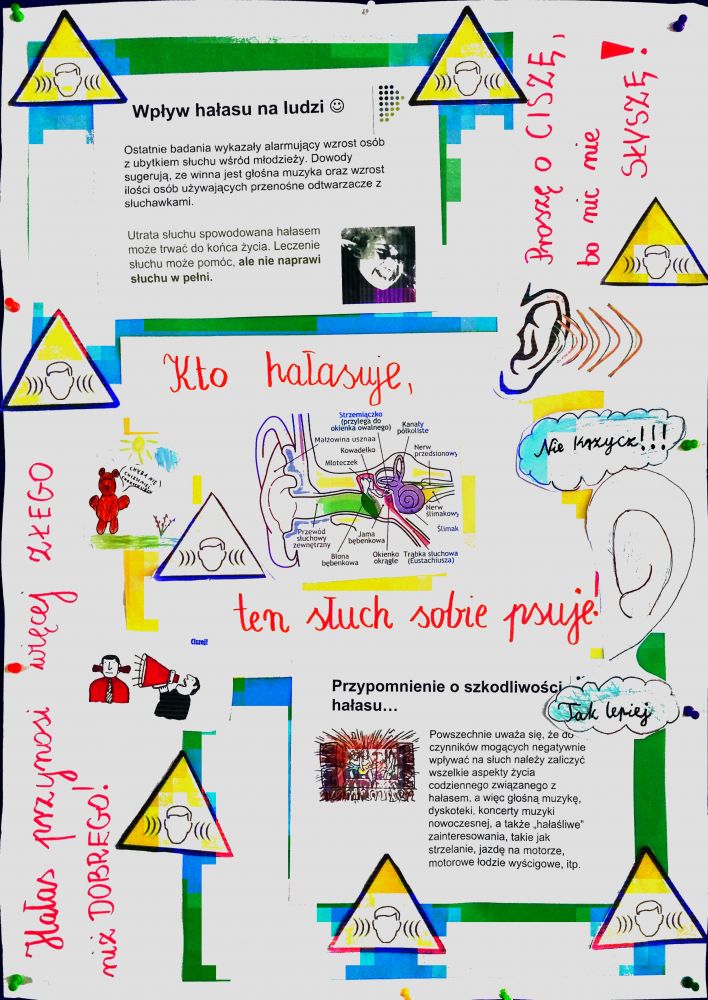 Wpływ hałasu na ludzi ☺
Ostatnie badania wykazały alarmujący wzrost osób
z ubytkiem słuchu wśród młodzieży. Dowody
sugerują, ze winna jest głośna muzyka oraz wzrost
ilości osób używających przenośne odtwarzacze z
słuchawkami.
Utrata słuchu spowodowana hałasem
może trwać do końca życia. Leczenie
słuchu może pomóc, ale nie naprawi
słuchu w pełni.
Proszę o CISZĘ,
bo nic nie
SŁYSZĘ!
Kto hałasuje,
Strzemiączko
(przylega do
okienka owalnego)
Kanały
półkoliste
Małżowina usznaa
Kowadełko
Młoteczek
Nerw
przedsionowy
Nerw
ślimakowy
Ślimak
Przewód
słuchowy
zewnętrzny
Jama
bębenkowa
Błona
bębenkowa
Okienko
okrągłe
Trąbka słuchowa
(Eustachiusza)
Nie krzycz!!!
ten słuch sobie psuje!
Ciszej!
Hałas przynosi więcej ZŁEGO
niż DOBREGO!
Przypomnienie o szkodliwości
hałasu…
Tak lepiej
Powszechnie uważa się, że do
czynników mogących negatywnie
wpływać na słuch należy zaliczyć
wszelkie aspekty życia
codziennego związanego z
hałasem, a więc głośną muzykę,
dyskoteki, koncerty muzyki
nowoczesnej, a także „hałaśliwe”
zainteresowania, takie jak
strzelanie, jazdę na motorze,
motorowe łodzie wyścigowe, itp.